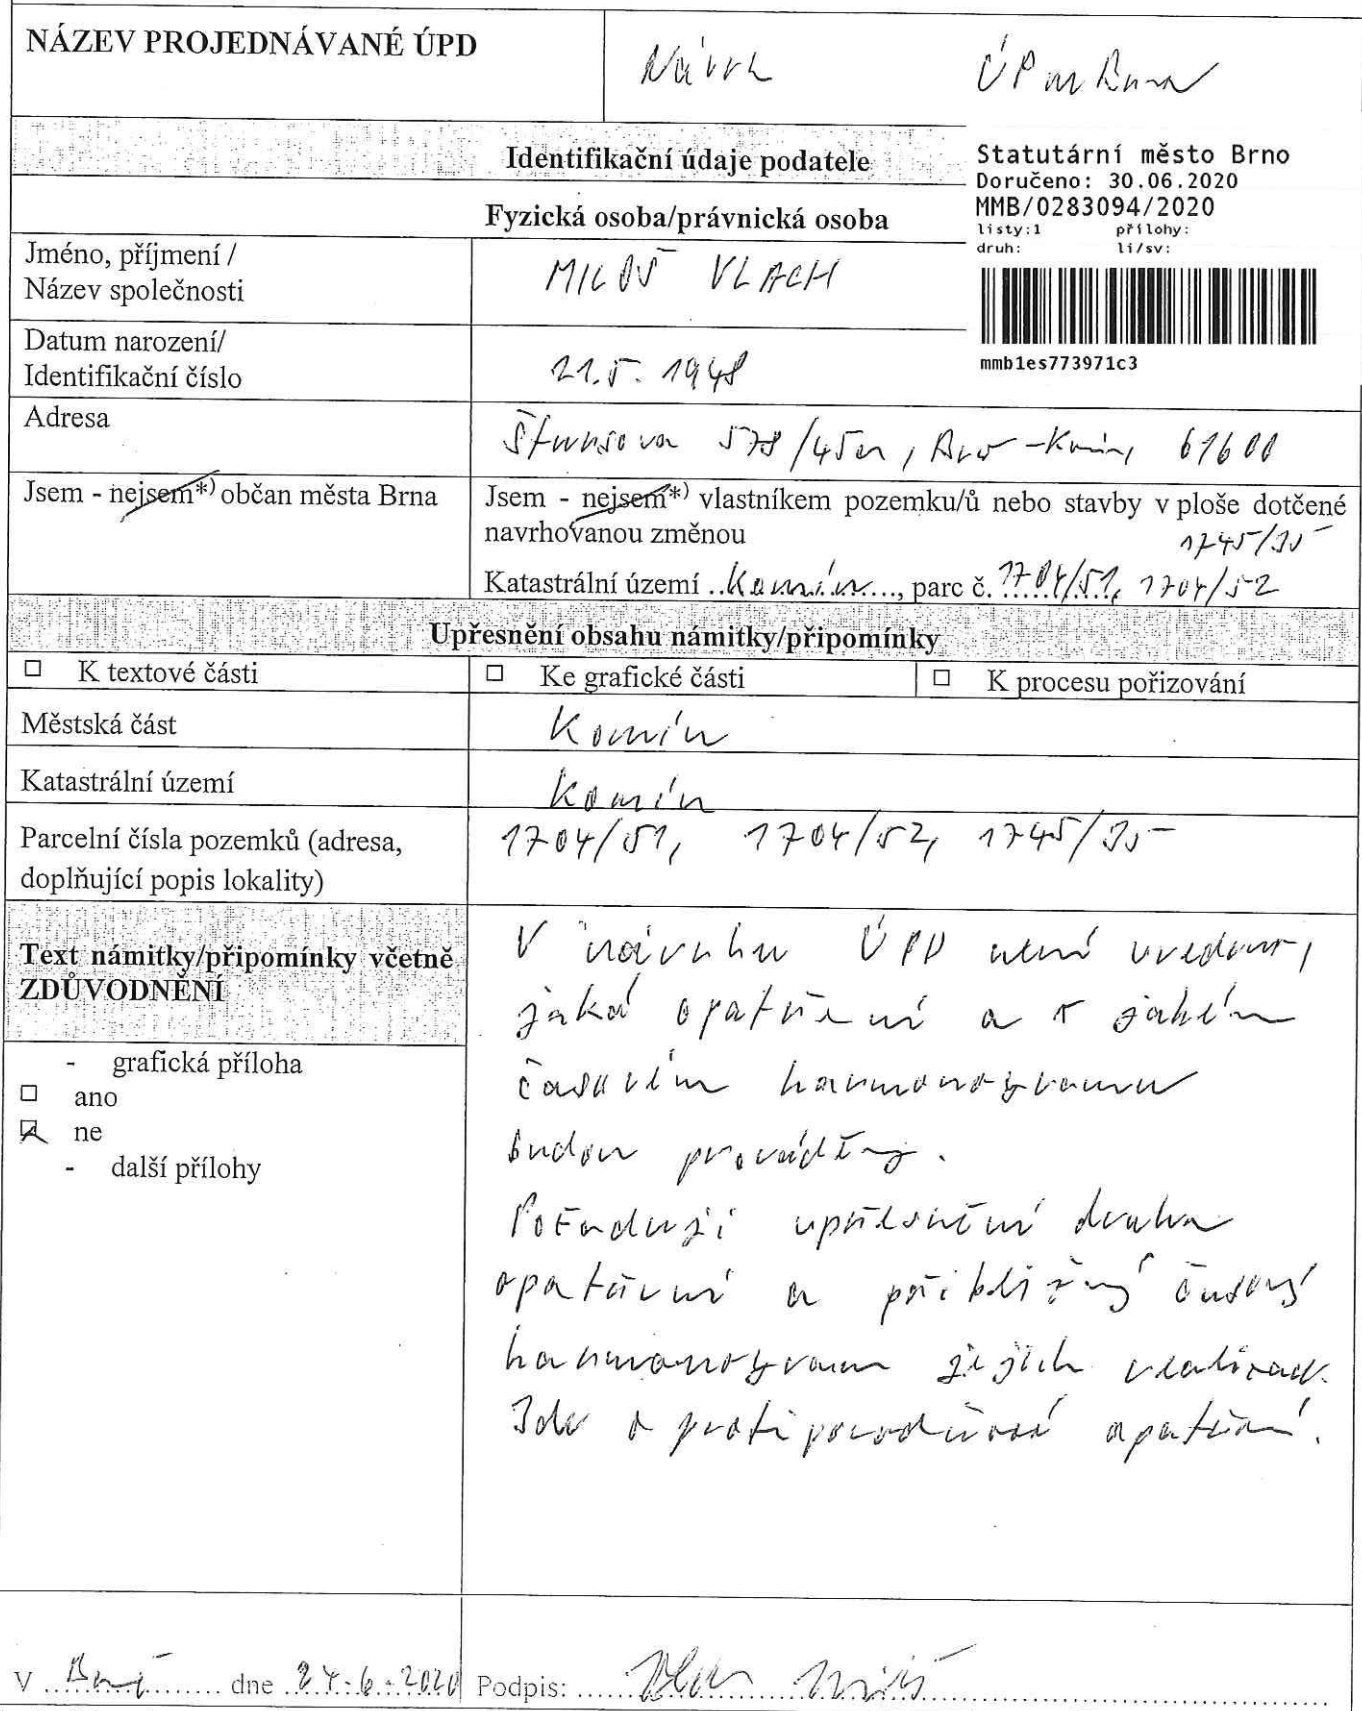 NÁZEV PROJEDNÁVANÉ ÚPD
Návrh ÚP m Brna
Identifikační údaje podatele
Statutární město Brno
Doručeno: 30.06.2020
MMB/0283094/2020
listy:1 přílohy:
druh: li/sv:
mmb1es773971c3
Fyzická osoba/právnická osoba
Jméno, příjmení /
Název společnosti
MILOŠ VLACH
Datum narození/
Identifikační číslo
21.5. 1948
Adresa
578/45a, Brno-Komín, 61600
Jsem - nejsem*) občan města Brna
Jsem - nejsem*) vlastníkem pozemku/ů nebo stavby v ploše dotčené
navrhovanou změnou
1745/35
Katastrální území ..Komín...., parc č. 1704/51, 1704/52
Upřesnění obsahu námitky/připomínky
□ K textové části
□ Ke grafické části
□ K procesu pořizování
Městská část
Komín
Katastrální území
Komín
Parcelní čísla pozemků (adresa,
doplňující popis lokality)
1704/51, 1704/52, 1745/35
Text námitky/připomínky včetně
ZDŮVODNĚNÍ
- grafická příloha
□ ano
☒ ne
- další přílohy
V návrhu ÚPD není uvedeno,
jaká opatření a v jakém
časovém harmonogramu
budou prováděny.
Požaduji upřesnění druhu
opatření a přibližný časový
harmonogram jejich realizace.
Jde o protipovodňová opatření.
V ..Brně......... dne 24.6.2020
Podpis: ...... Vlach Miloš